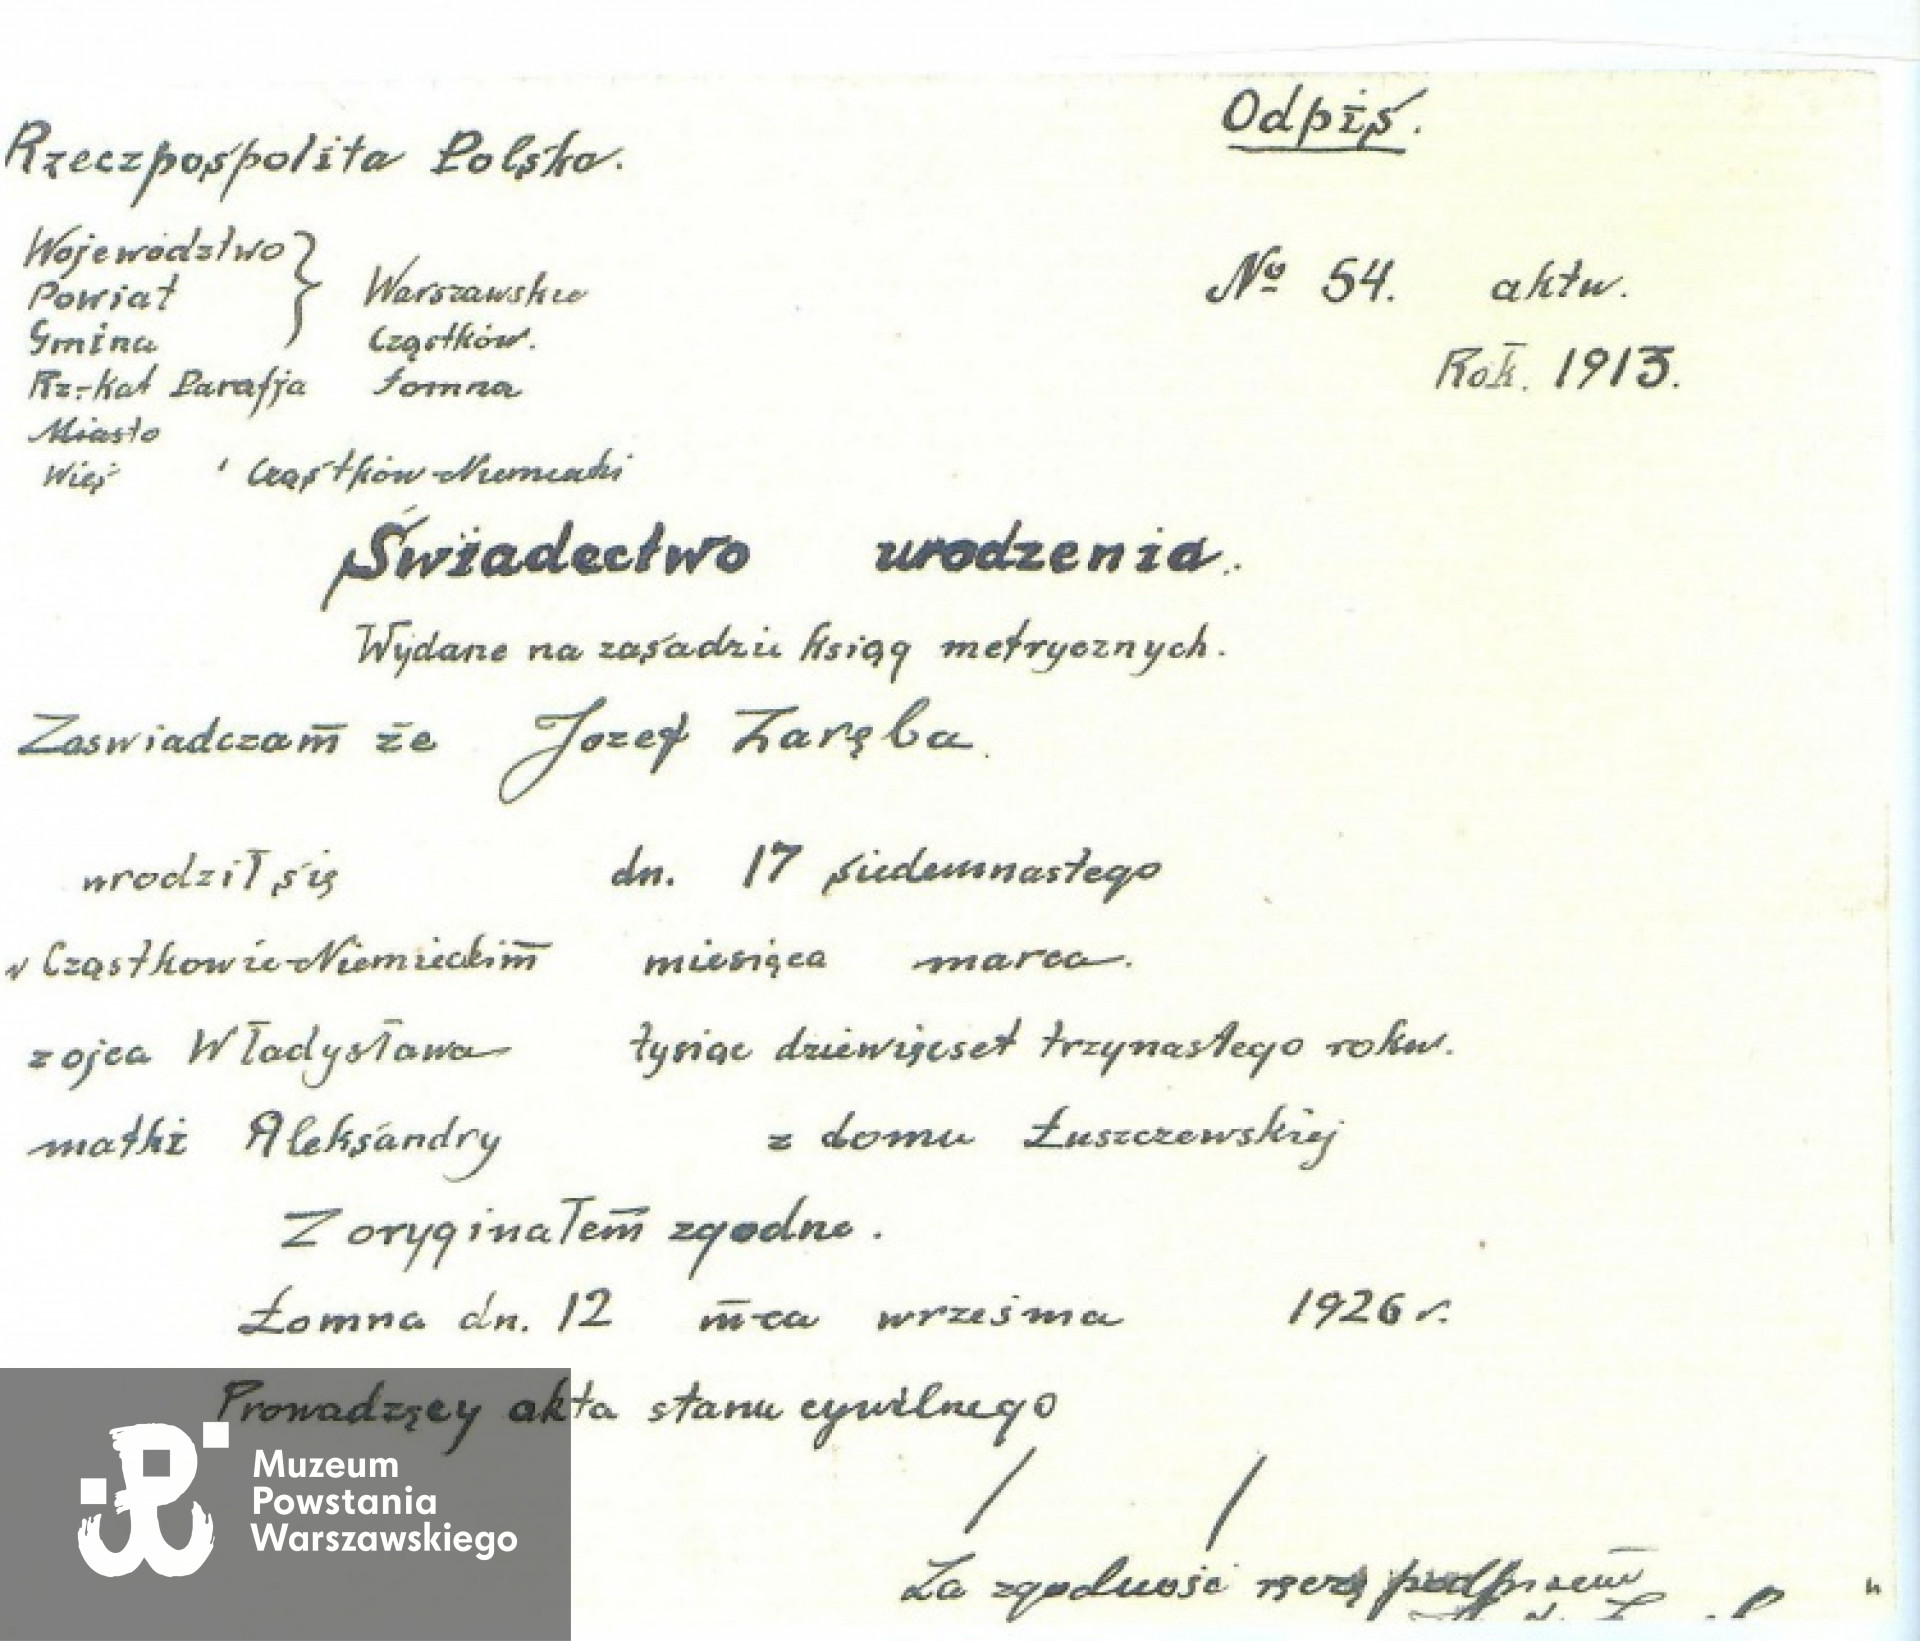 Odpis.
Rzeczpospolita Polska.
Województwo
Powiat Warszawskie
Gmina Cząstków.
Rz-kat Parafja Łomna
Miasto
Wieś Cząstków-Niemiecki
No 54. aktu.
Rok. 1913.
Świadectwo urodzenia.
Wydane na zasadzie ksiąg metrycznych.
Zaswiadczam że Jozef Zaręba
urodził się dn. 17 siedemnastego
w Cząstkowie-Niemieckim miesiąca marca.
z ojca Władysława tysiąc dziewięćset trzynastego roku.
matki Aleksandry z domu Łuszczewskiej
Z oryginałem zgodne.
Łomna dn. 12 m-ca września 1926 r.
Prowadzący akta stanu cywilnego
/ /
Za zgodność ręczę podpisem
Muzeum
Powstania
Warszawskiego